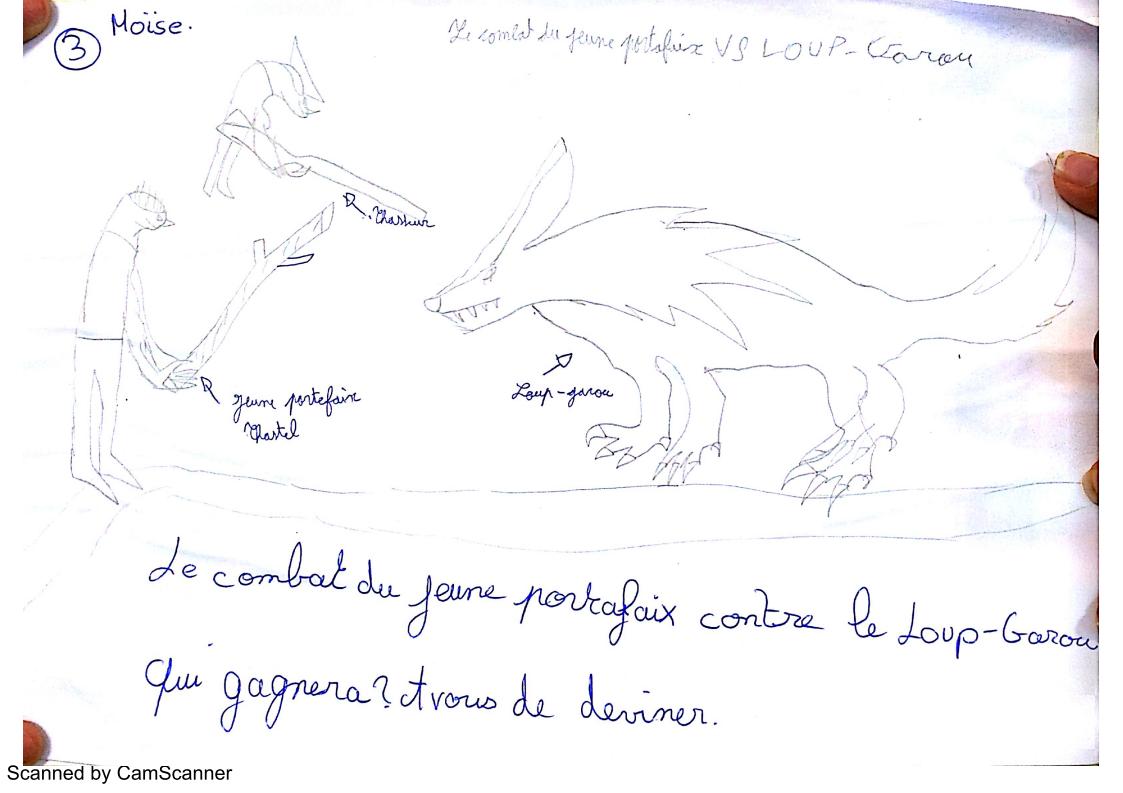 3
Moïse.
Le combat du jeune portafaix VS LOUP-Garou
Chasseur
jeune portefaix
Chastel
Loup-garou
Le combat du jeune portafaix contre le Loup-Garou
Qui gagnera? A vous de deviner.
Scanned by CamScanner